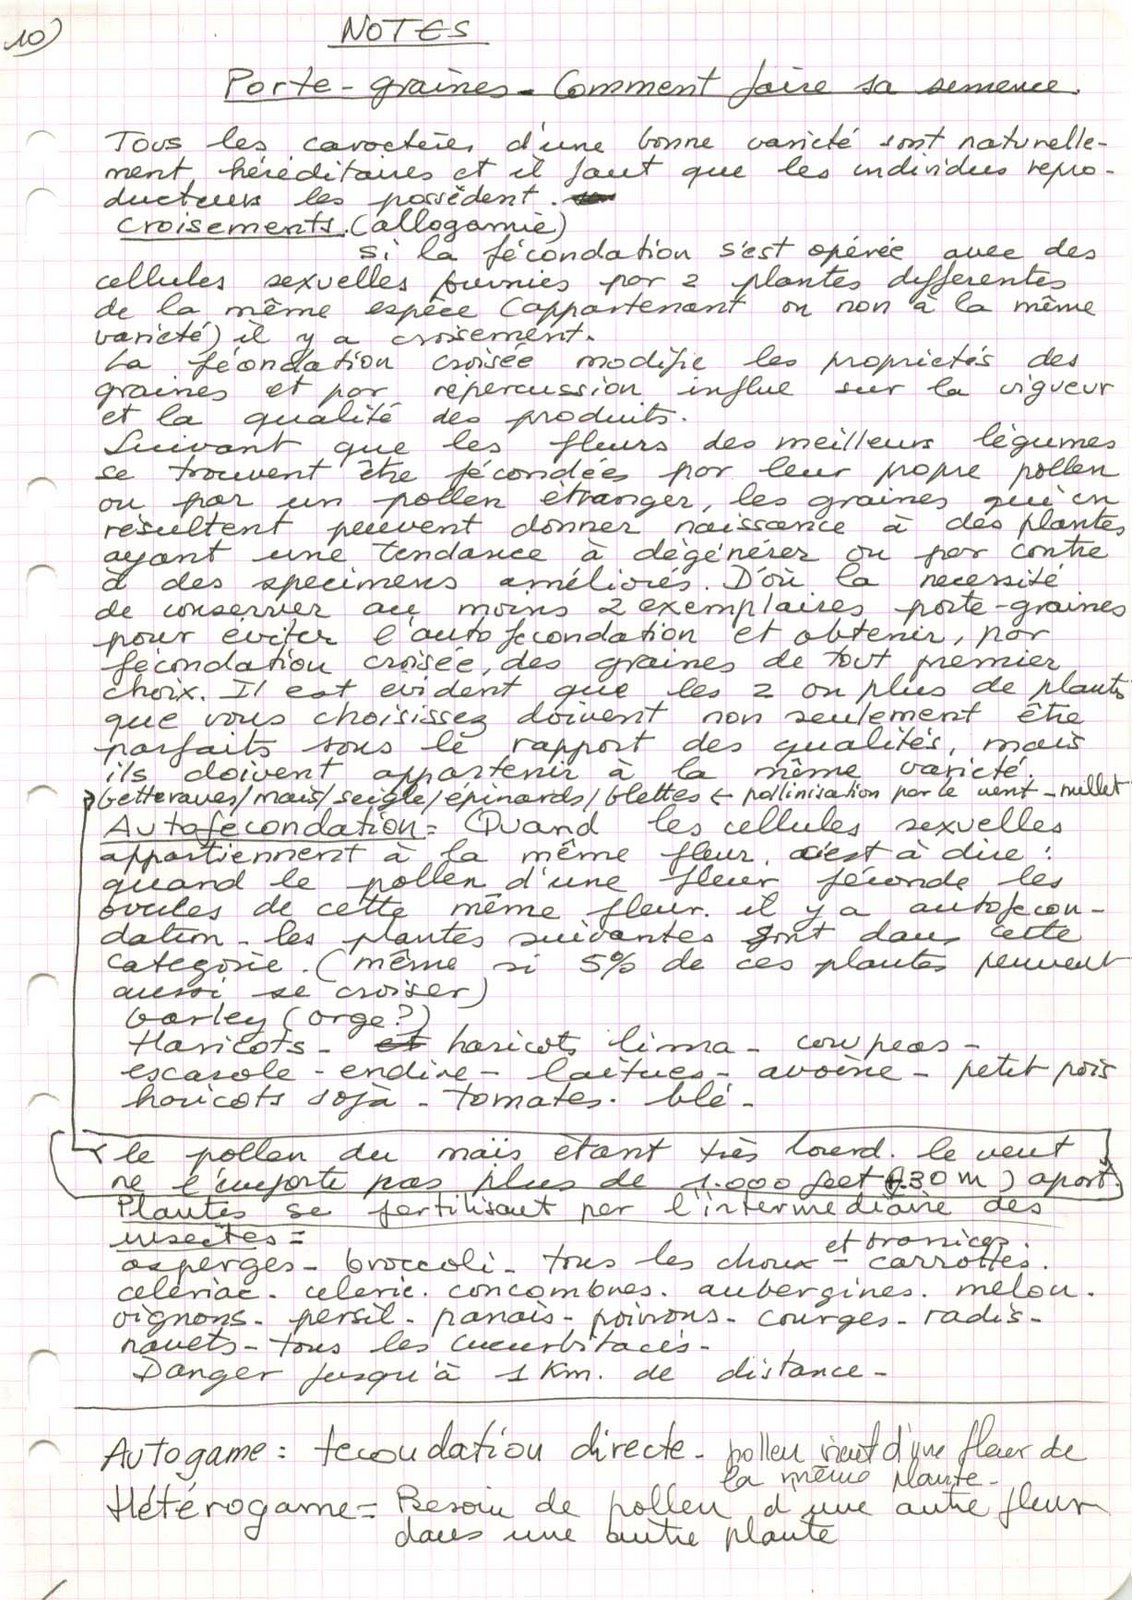 10)
NOTES
Porte-graines - Comment faire sa semence.
Tous les caractères d'une bonne varieté sont naturelle-
ment héréditaires et il faut que les individus repro-
ducteurs les possèdent.
Croisements. (allogamie)
Si la fécondation s'est opérée avec des
cellules sexuelles fournies par 2 plantes differentes
de la même espèce (appartenant ou non à la même
varieté) il y a croisement.
La féondation croisée modifie les proprietés des
graines et par repercussion influe sur la vigueur
et la qualité des produits.
Suivant que les fleurs des meilleurs légumes
se trouvent être fécondées par leur propre pollen
ou par un pollen étranger, les graines qui en
résultent peuvent donner naissance à des plantes
ayant une tendance à dégénérer ou par contre
à des specimens améliorés. D'où la necessité
de conserver au moins 2 exemplaires porte-graines
pour éviter l'autofecondation et obtenir, par
fécondation croisée, des graines de tout premier
choix. Il est évident que les 2 ou plus de plants
que vous choisissez doivent non seulement être
parfaits sous le rapport des qualités, mais
ils doivent appartenir à la même varieté.
betteraves/maïs/seigle/épinards/blettes ← pollinisation par le vent - millet
Autofécondation = Quand les cellules sexuelles
appartiennent à la même fleur. c'est à dire :
quand le pollen d'une fleur féconde les
ovules de cette même fleur. il y a autofecon-
dation - les plantes suivantes sont dans cette
categorie. (même si 5% de ces plantes peuvent
aussi se croiser)
barley (orge?)
Haricots - et haricots lima - cowpeas -
escarole - endive - laitues - avoine - petit pois
haricots soja - tomates. blé -
le pollen du maïs étant très lourd. le vent
ne l'emporte pas plus de 1.000 feet (330 m) apart.
Plantes se fertilisant par l'intermediaire des
insectes =
et brassicas.
asperges - broccoli - tous les choux - carrottes.
celeriac. celeric. concombres. aubergines. melon.
oignons - persil - panais - poivrons - courges - radis -
navets - tous les cucurbitacés -
Danger jusqu'à 1 Km. de distance -
Autogame : fecondation directe - pollen vient d'une fleur de
la même plante -
Hétérogame = Besoin de pollen d'une autre fleur
dans une autre plante